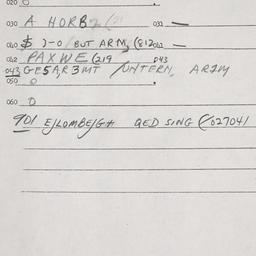 020 0
030 A HORB 031 —
040 $ J-0 BUT ARM, (812 041 —
042 PAXWE (219 043
043 GESA,R 3MT /UNTERN, ARIM
050 0
060 0
901 E/LOMBE/G# QED SING (027041